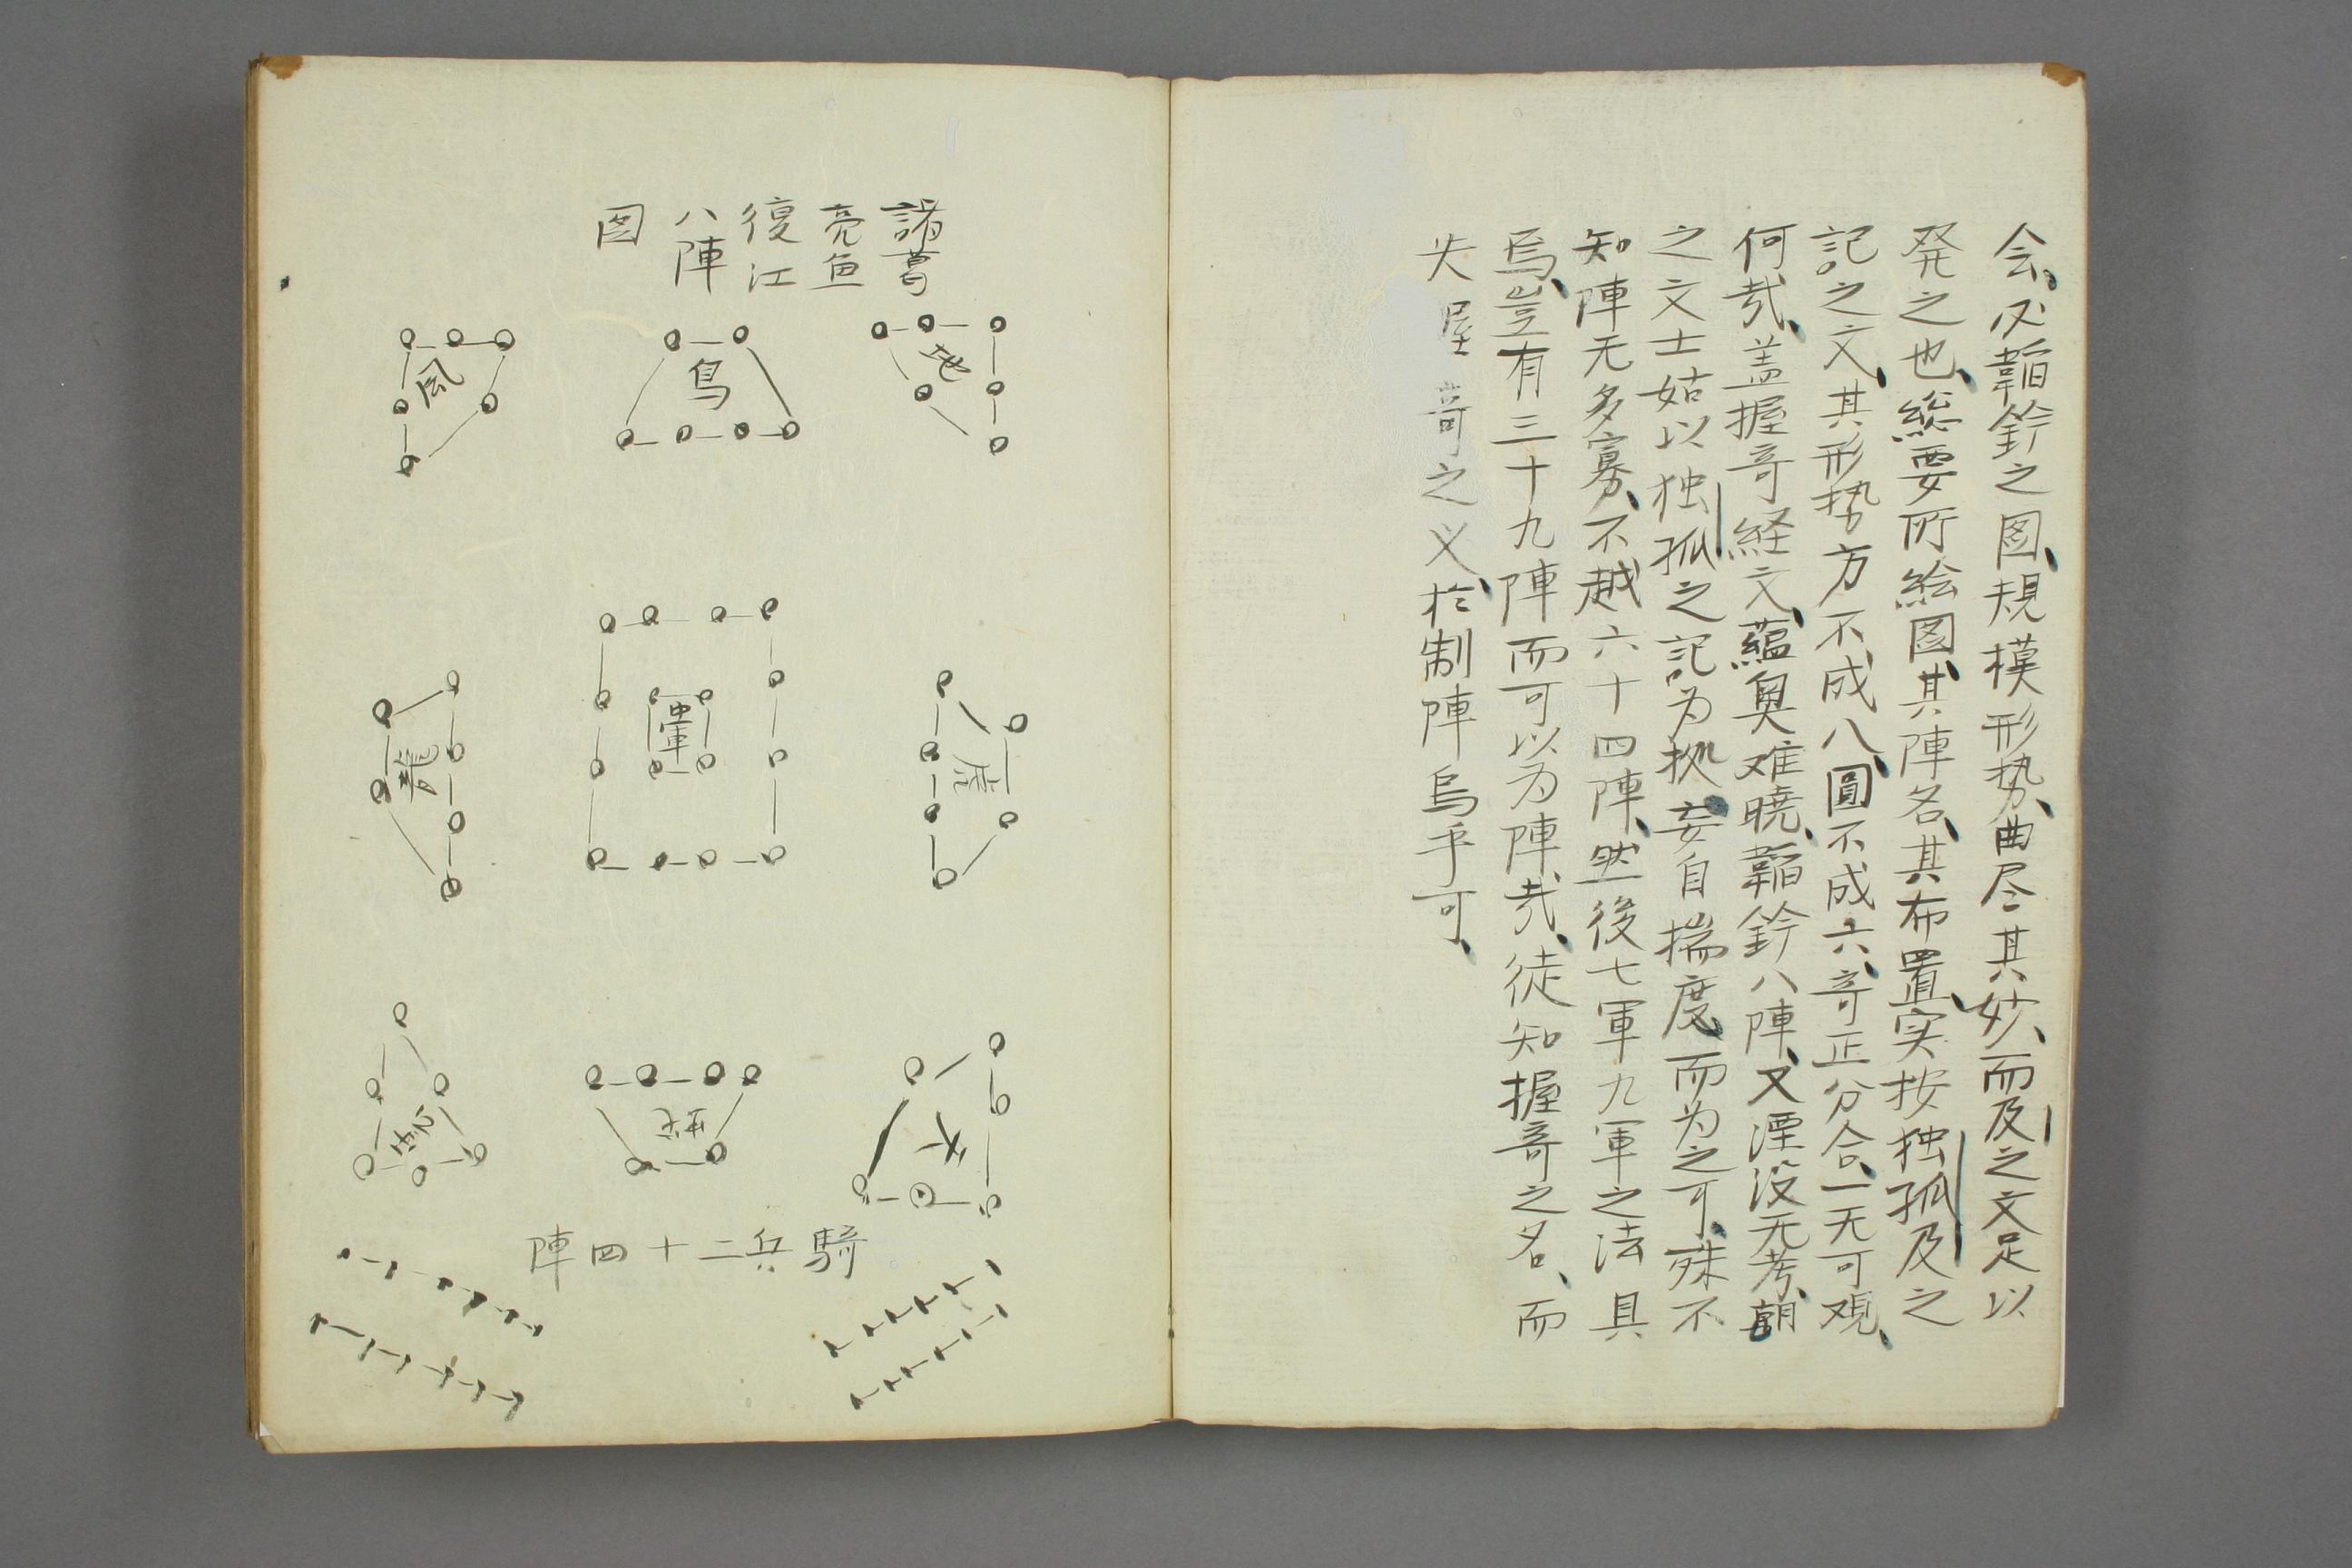 会、必韜鈐之図、規模形势、曲尽其妙、而及之文足以
発之也、総要所絵図、其陣名、其布置実按独孤及之
記之文、其形势方不成八、圓不成六、竒正分合、一无可观、
何㢤、盖握竒経文、蘊奥难曉、韜鈐八陣、又湮没无考、朝
之文士姑以独孤之記为拠、妄自揣度、而为之可、殊不
知陣无多寡、不越六十四陣、然後七軍九軍之法具
焉、豈有三十九陣而可以为陣㢤、徒知握竒之名、而
失屋竒之义、於制陣烏乎可、
諸葛
亮魚
復江
八陣
図
地
鳥
風
虎
中軍
龍
天
蛇
雲
騎兵二十四陣